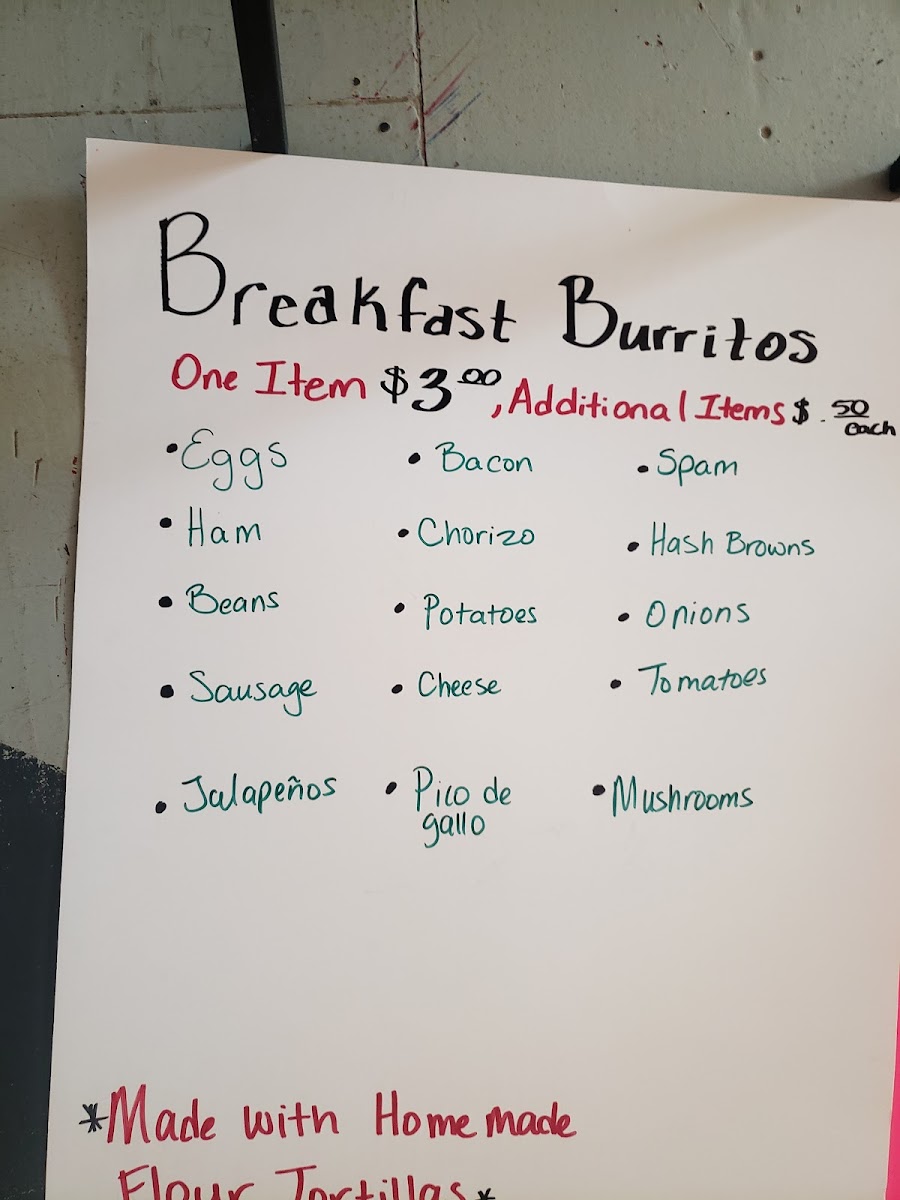 Breakfast Burritos
One Item $3.00, Additional Items $ .50 each
• Eggs • Bacon • Spam
• Ham • Chorizo • Hash Browns
• Beans • Potatoes • Onions
• Sausage • Cheese • Tomatoes
• Jalapeños • Pico de • Mushrooms
gallo
*Made with Homemade
Flour Tortillas*